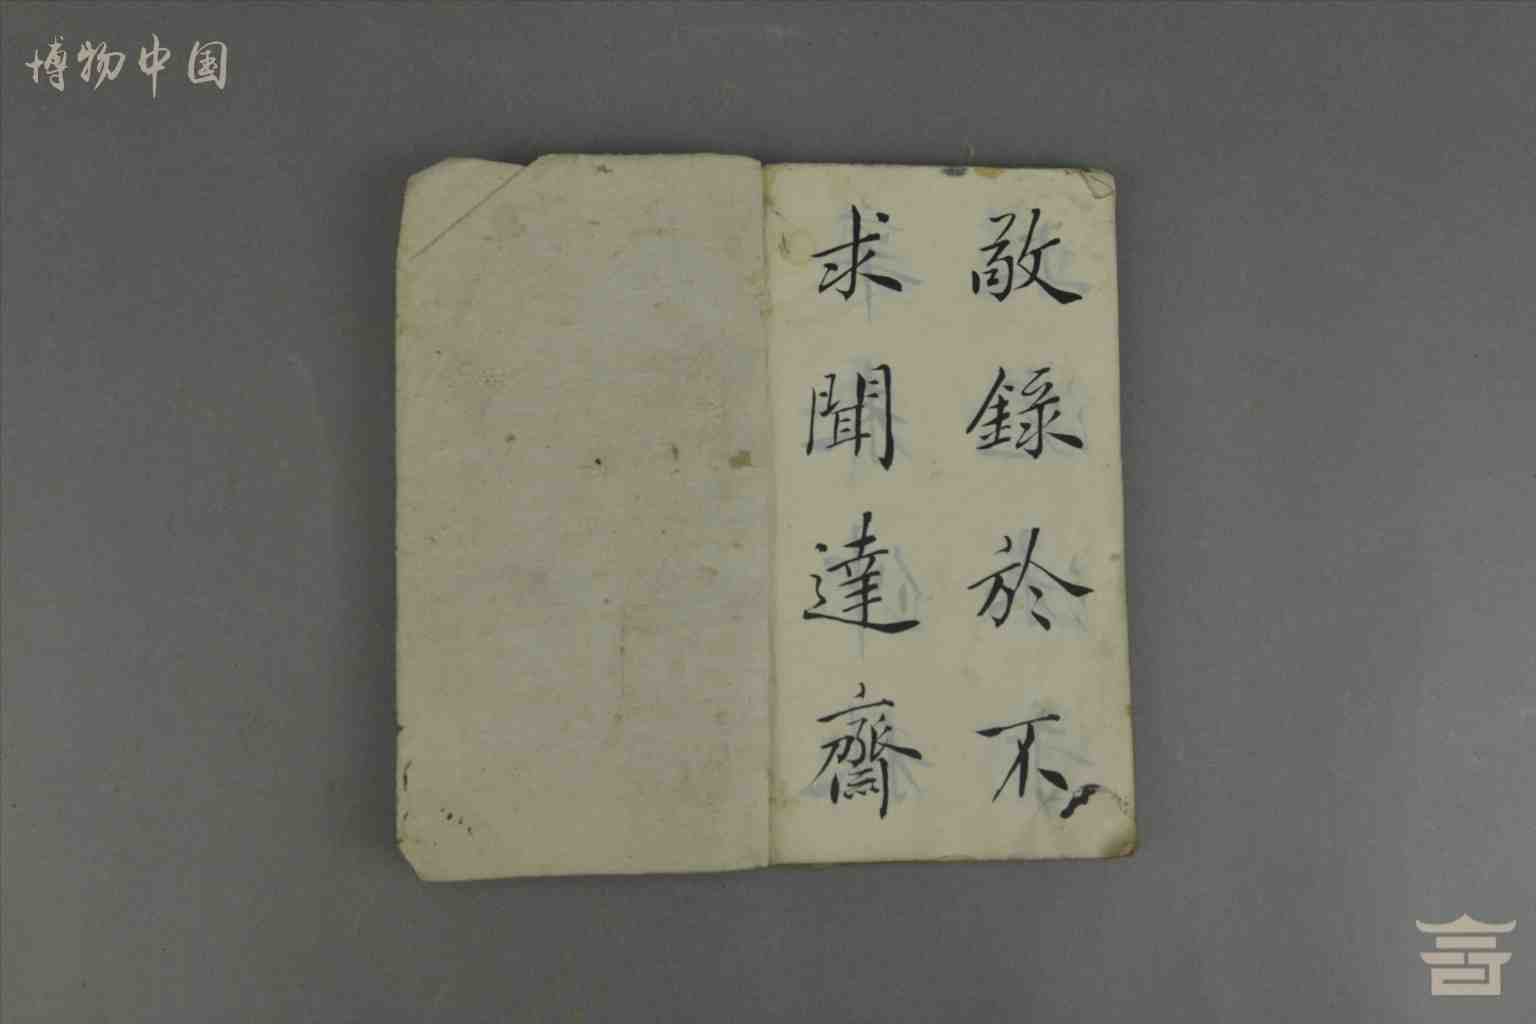 博物中国
敬錄於不
求聞達齋